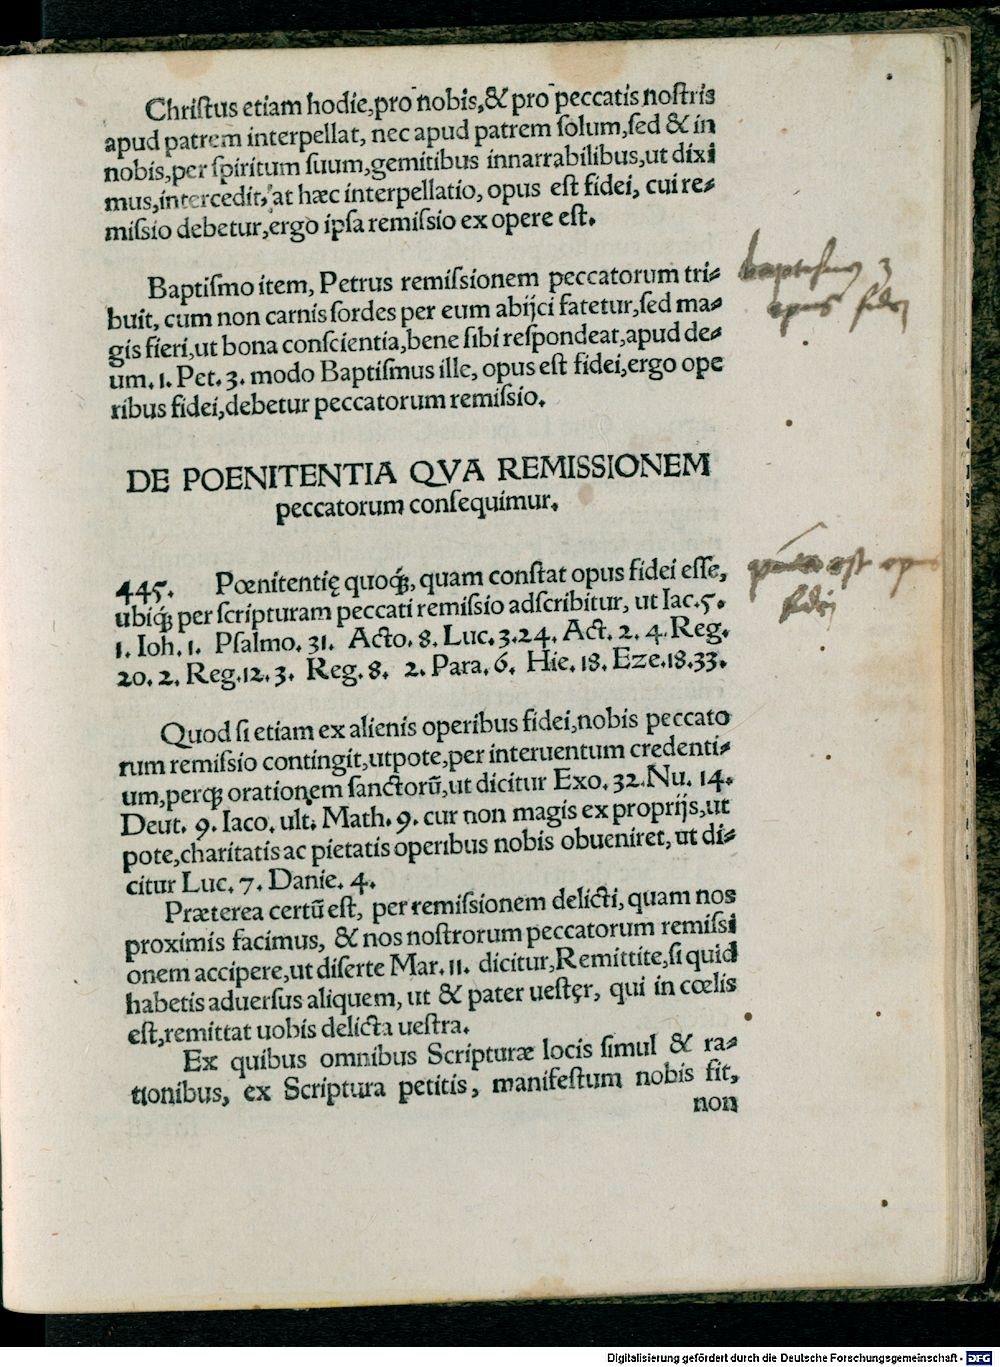 Chriſtus etiam hodie,pro nobis,& pro peccatis noſtris
apud patrem interpellat, nec apud patrem ſolum,ſed & in
nobis,per ſpiritum ſuum,gemitibus innarrabilibus,ut dixi
mus,intercedit, at hæc interpellatio, opus eſt fidei, cui re⸗
miſſio debetur,ergo ipſa remiſſio ex opere eſt.
Baptiſmo item, Petrus remiſsionem peccatorum tri⸗
buit, cum non carnis ſordes per eum abijci fatetur,ſed ma⸗
gis fieri,ut bona conſcientia,bene ſibi reſpondeat,apud de⸗
um. 1. Pet. 3. modo Baptiſmus ille, opus eſt fidei,ergo ope
ribus fidei,debetur peccatorum remiſsio.
baptismus
opus fidei
DE POENITENTIA QVA REMISSIONEM
peccatorum conſequimur.
445. Pœnitentię quoqꝫ, quam conſtat opus fidei eſſe,
ubiqꝫ per ſcripturam peccati remiſsio adſcribitur, ut Iac.5.
1. Ioh. 1. Pſalmo. 31. Acto. 8. Luc. 3.24. Act. 2. 4. Reg.
20. 2. Reg.12. 3. Reg. 8. 2. Para. 6. Hie. 18. Eze.18.33.
est opus
fidei
Quod ſi etiam ex alienis operibus fidei,nobis peccato
rum remiſsio contingit,utpote,per interuentum credenti⸗
um,perqꝫ orationem ſanctorū,ut dicitur Exo. 32.Nu. 14.
Deut. 9. Iaco. ult. Math. 9. cur non magis ex proprijs,ut
pote,charitatis ac pietatis operibus nobis obueniret, ut di⸗
citur Luc. 7. Danie. 4.
Præterea certū eſt, per remiſsionem delicti, quam nos
proximis facimus, & nos noſtrorum peccatorum remiſsi
onem accipere,ut diſerte Mar. 11. dicitur,Remittite,ſi quid
habetis aduerſus aliquem, ut & pater ueſter, qui in cœlis
eſt,remittat uobis delicta ueſtra.
Ex quibus omnibus Scripturæ locis ſimul & ra⸗
tionibus, ex Scriptura petitis, manifeſtum nobis fit,
non
Digitalisierung gefördert durch die Deutsche Forschungsgemeinschaft - DFG